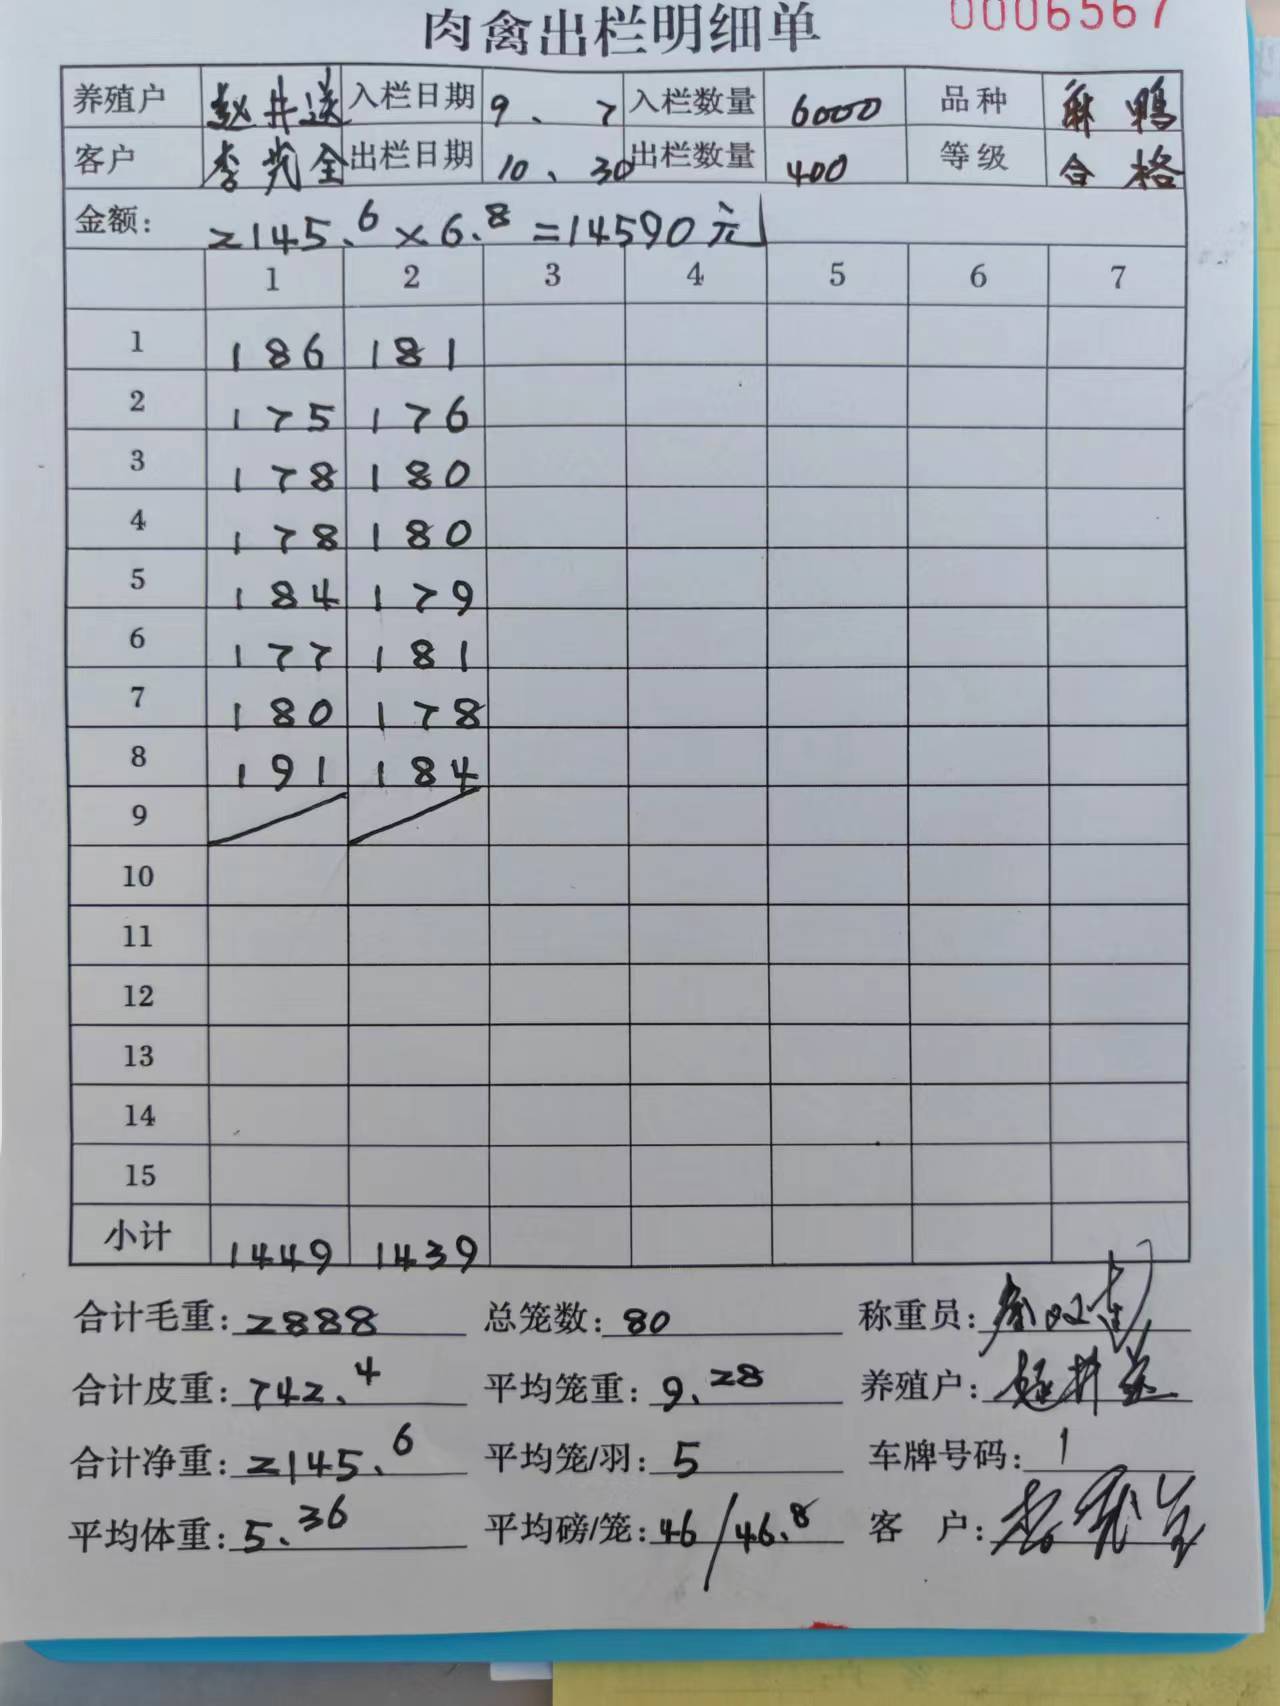 0006567
肉禽出栏明细单
养殖户 赵井送 入栏日期 9、7 入栏数量 6000 品种 麻鸭
客户 李光全 出栏日期 10、30 出栏数量 400 等级 合格
金额: 2145.6×6.8=14590元
1 2 3 4 5 6 7
1 186 181
2 175 176
3 178 180
4 178 180
5 184 179
6 177 181
7 180 178
8 191 184
9
10
11
12
13
14
15
小计 1449 1439
合计毛重: 2888 总笼数: 80 称重员:
合计皮重: 742.4 平均笼重: 9.28 养殖户:
合计净重: 2145.6 平均笼/羽: 5 车牌号码: 1
平均体重: 5.36 平均磅/笼: 46/46.8 客户: